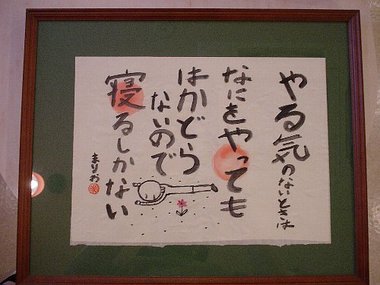 やる気のないときは
なにをやっても
はかどら
ないので
寝るしかない
まりお